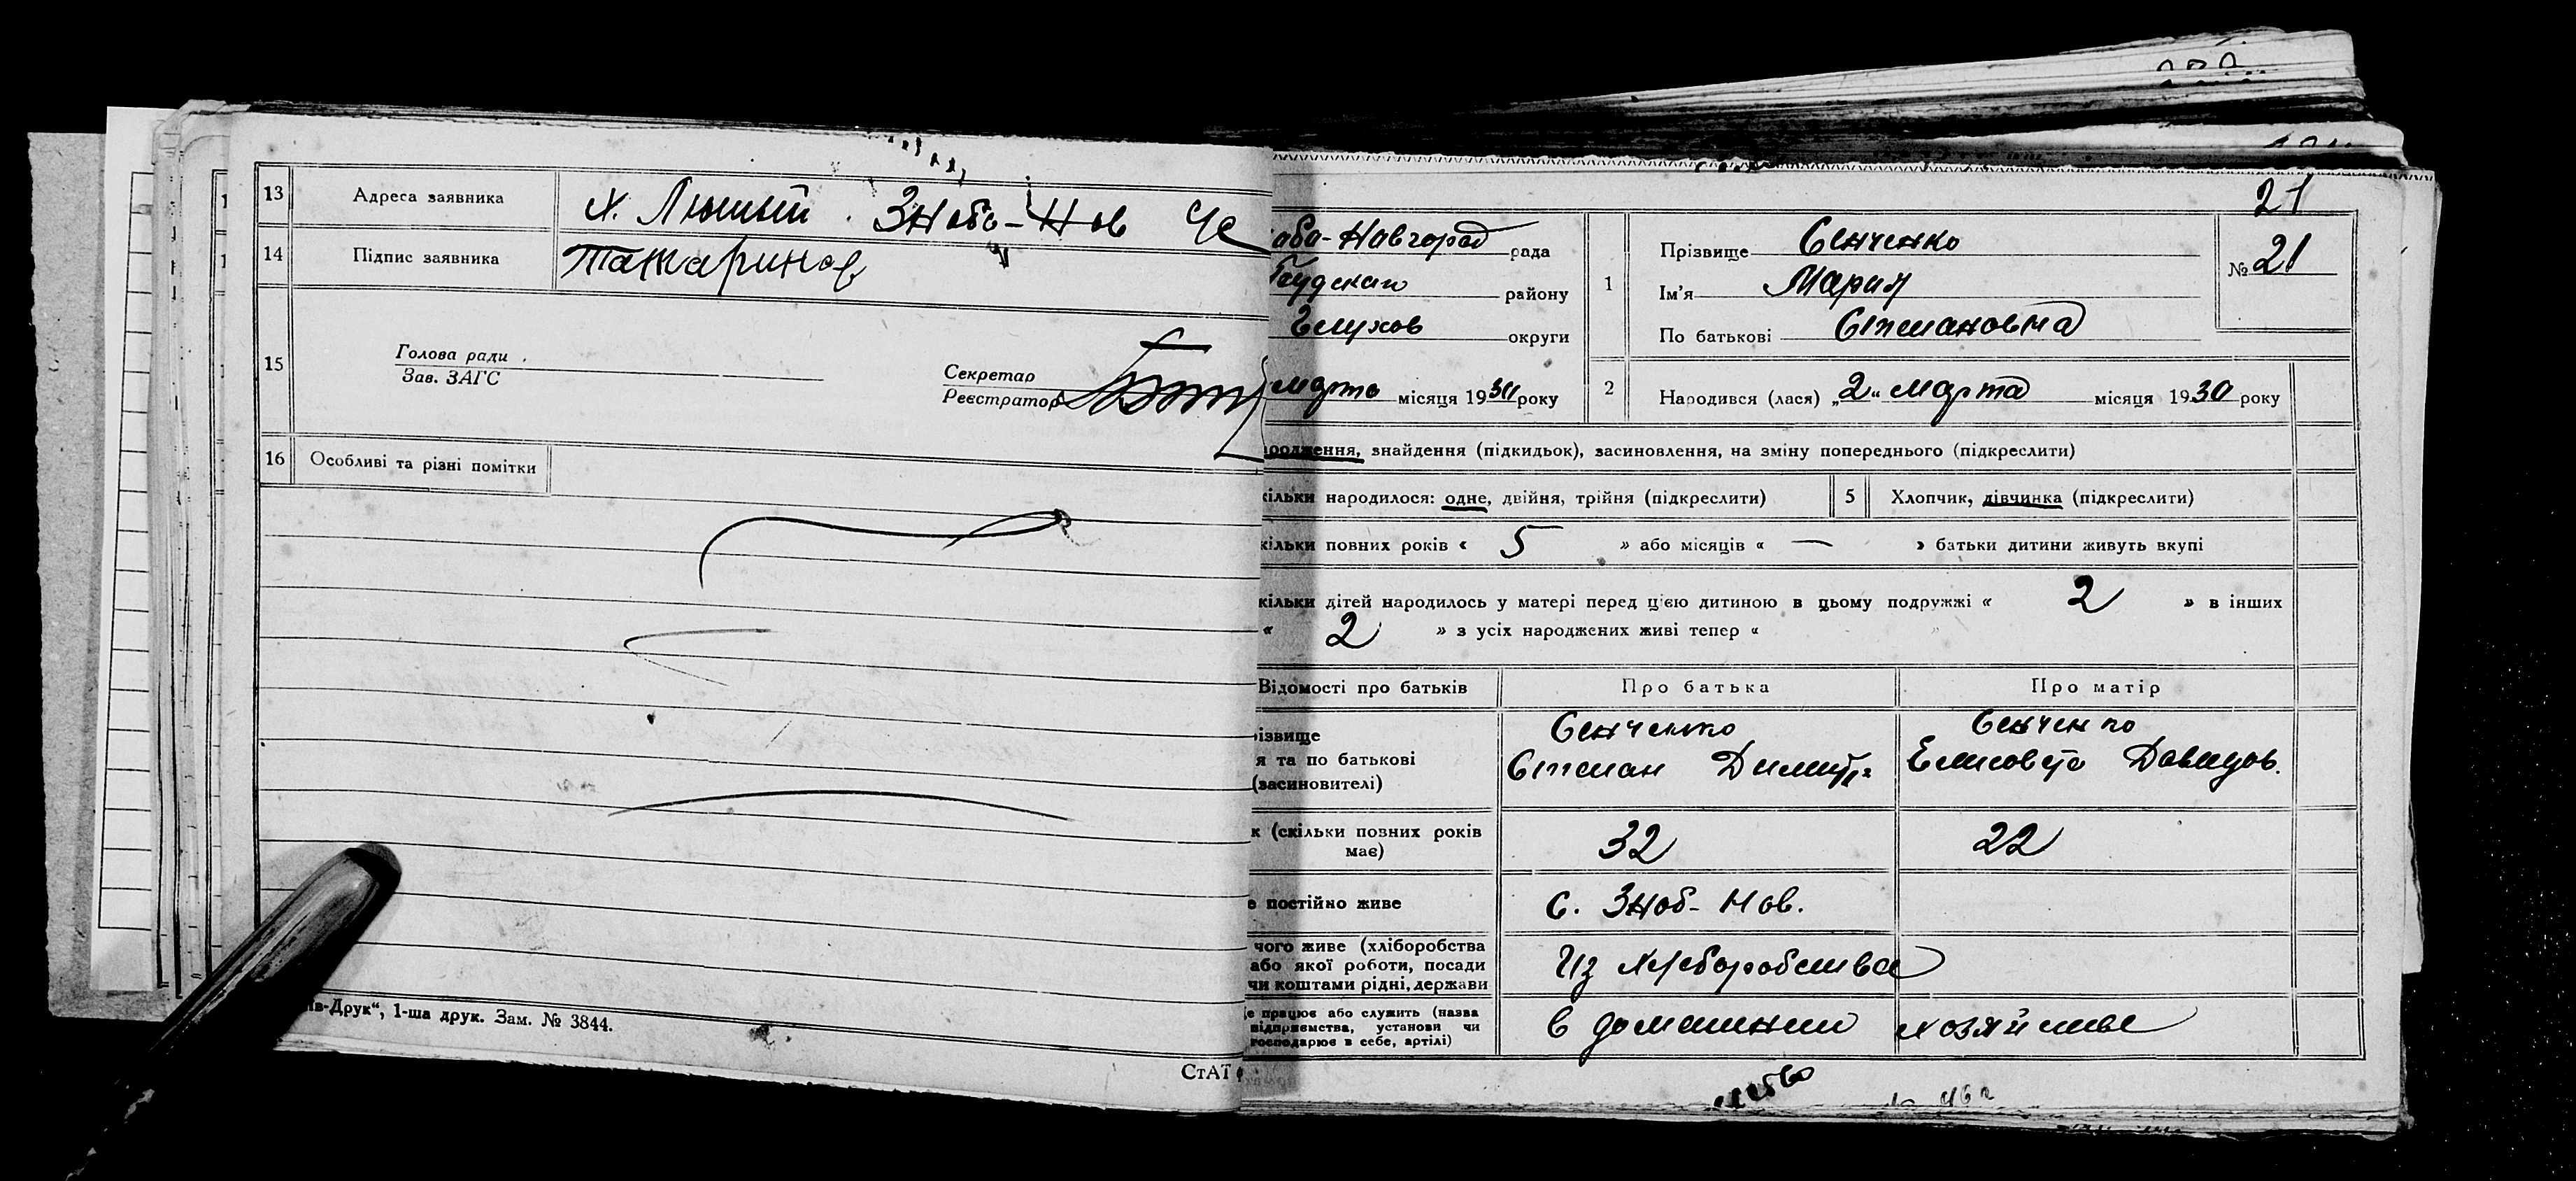 13 Адреса заявника х. Лютый. Знобо-Нов
14 Підпис заявника Татаринов
15 Голова ради
Зав. ЗАГС
Секретар
Реєстратор
16 Особливі та різні помітки
ів-Друк“, 1-ша друк. Зам. № 3844.
СтАТ
21
оба-Новгород рада
району
Глухов округи
марта місяця 1930 року
1 Прізвище Сенченко
Ім'я Мария
По батькові Степановна
№ 21
2 Народився (лася) „2“ марта місяця 1930 року
ародження, знайдення (підкидьок), засиновлення, на зміну попереднього (підкреслити)
кільки народилося: одне, двійня, трійня (підкреслити) 5 Хлопчик, дівчинка (підкреслити)
кільки повних років « 5 » або місяців « — » батьки дитини живуть вкупі
кільки дітей народилось у матері перед цією дитиною в цьому подружжі « 2 » в інших
« 2 » з усіх народжених живі тепер «
Відомості про батьків Про батька Про матір
різвище
я та по батькові
(засиновителі)
Сенченко
Степан Димитр.
Сенченко
Елисовета Давидов.
к (скільки повних років
має)
32 22
е постійно живе с. Зноб-Нов.
чого живе (хліборобства
або якої роботи, посади
чи коштами рідні, держави
Из хлеборобства
е працює або служить (назва
підприємства, установи чи
господарює в себе, артілі)
в домашнем хозяйстве